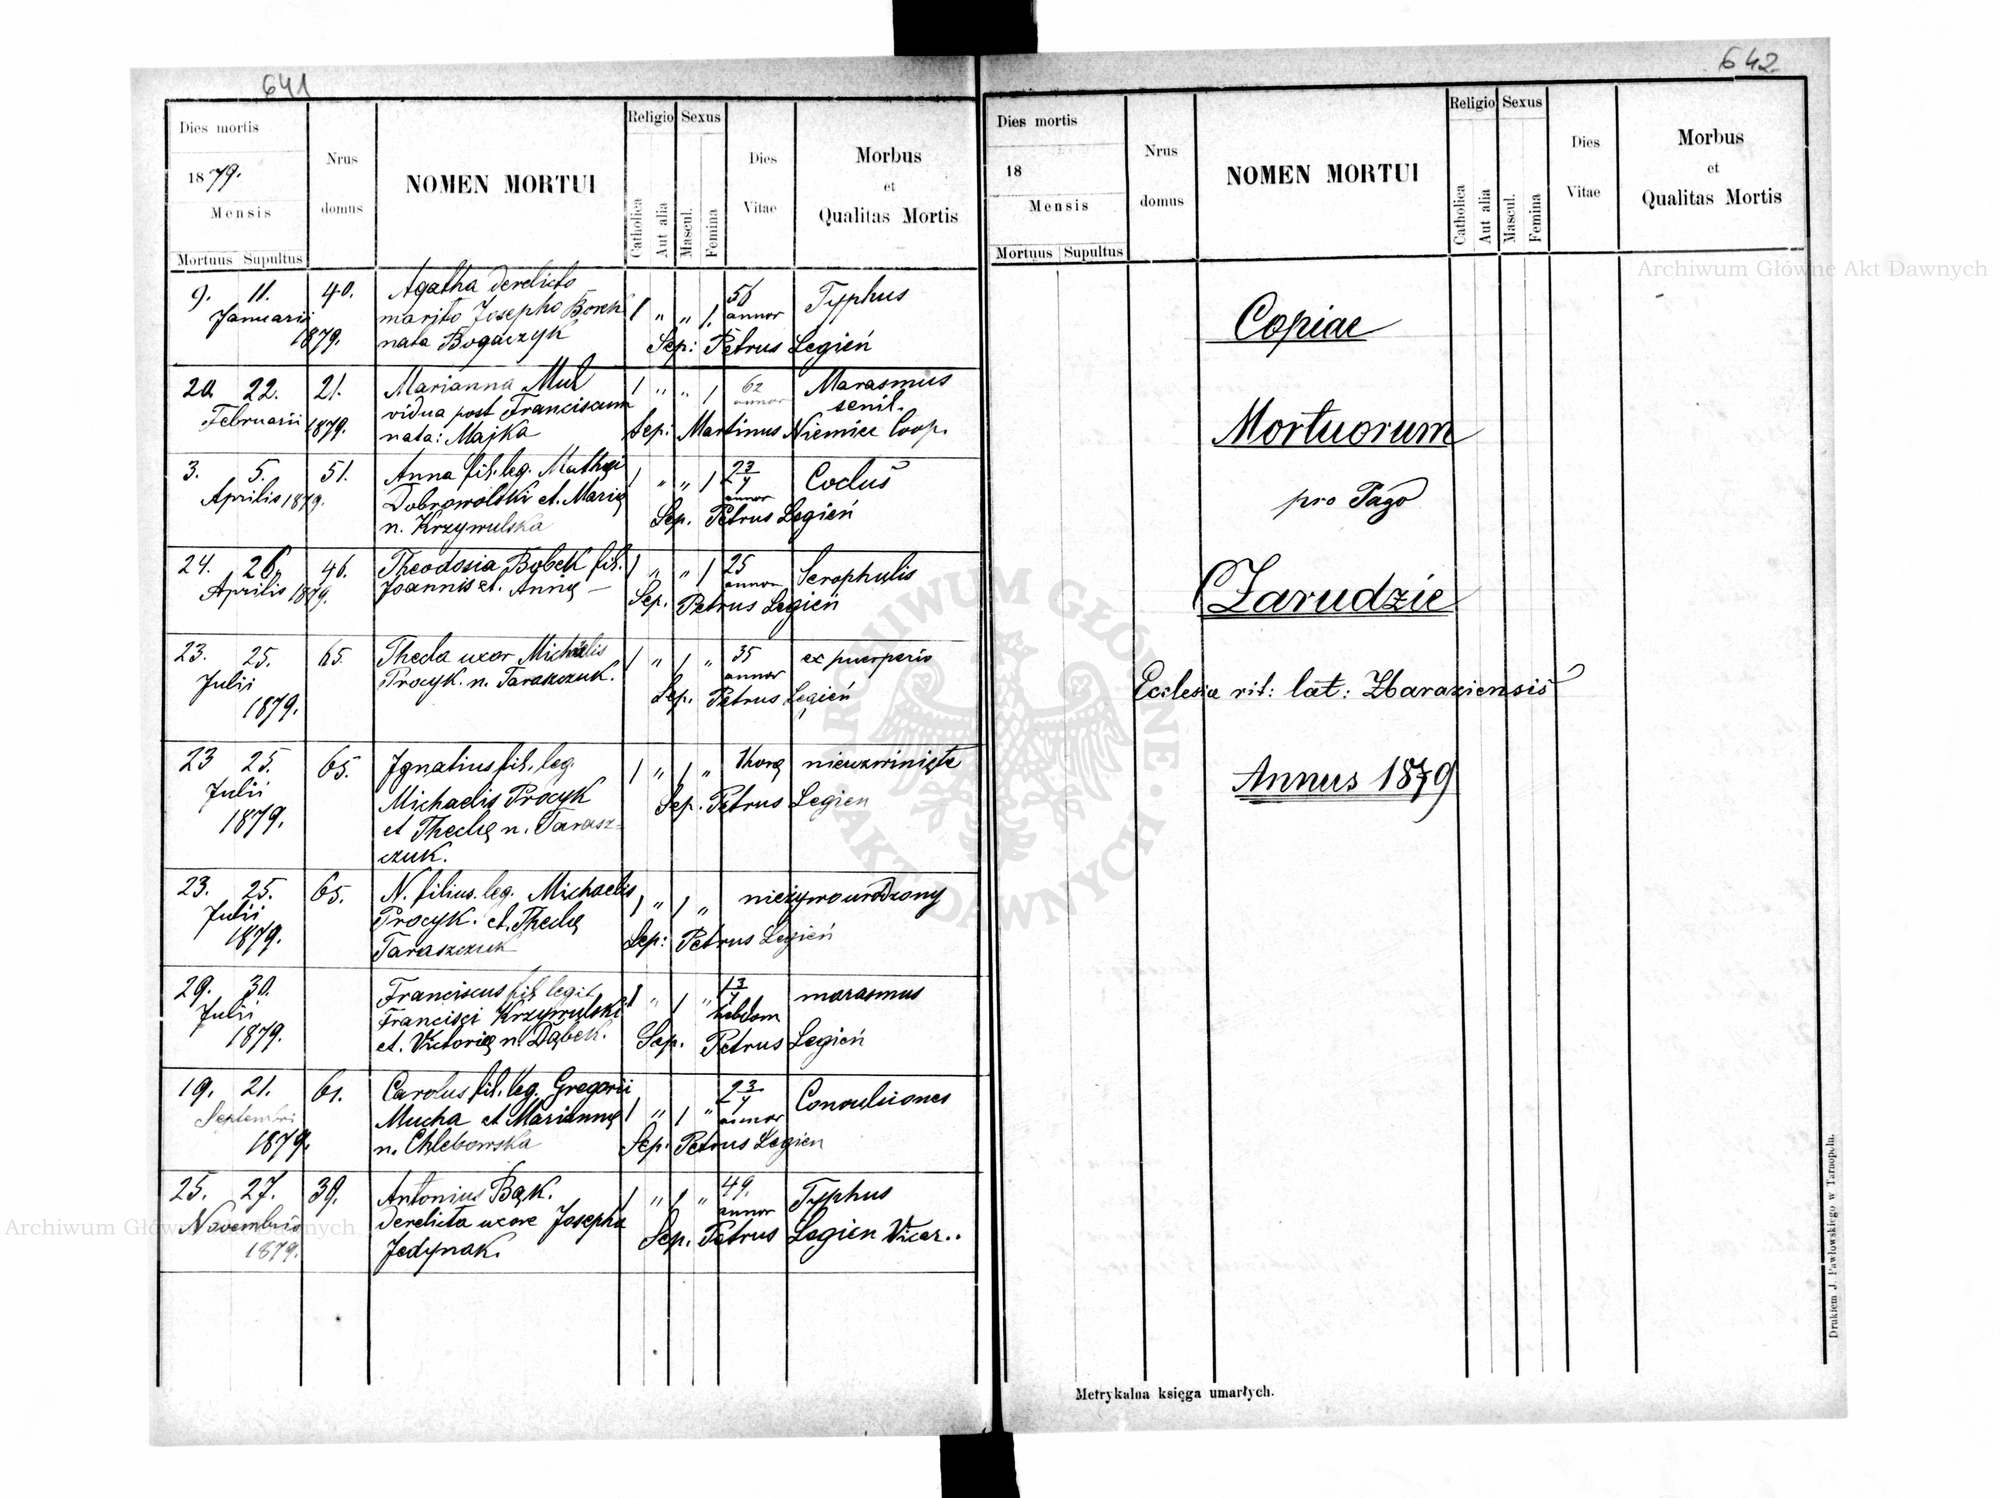 641
Dies mortis
1879.
Mensis
Mortuus Supultus
Nrus
domus
NOMEN MORTUI
Religio Sexus
Catholica
Aut alia
Mascul.
Femina
Dies
Vitae
Morbus
et
Qualitas Mortis
9. 11. 40. Agatha derelicto 56 Typhus
Januarii marito Josepho Borek 1 " " 1. annor
1879. nata Bogaczyk Sep: Petrus Legień
20 22. 21. Marianna Mul 1 " " 1 62 Marasmus
Februarii 1879. vidua post Franciscum annor senil.
nata: Majka Sep: Martinus Niemiec Coop.
3. 5. 51. Anna fil. leg. Mathęi 1 " " 1 2 3/4
Aprilis 1879. Dobrowolski et. Marię annor
n. Krzywulska Sep. Petrus Legień
24. 26. 46. Theodosia Bobek fil. 1 " " 1 25 Scrophulis
Aprilis 1879. Joannis et. Annę — annor
Sep. Petrus Legień
23. 25. 65. Thecla uxor Michaelis 1 " 1 " 35 ex puerperio
Julii Procyk. n. Taraszczuk. annor
1879. Sep. Petrus Legień
23 25. 65. Ignatius fil. leg. 1 " 1 " 1 horę
Julii Michaelis Procyk Sep. Petrus Legien
1879. et Theclę n. Tarasz-
czuk.
23. 25. 65. N. filius. leg. Michaelis 1 " 1 " nieżywo urodzony
Julii Procyk. et. Theclę
1879. Taraszczuk Sep: Petrus Legień
29. 30. Franciscus fil. legit. 1 " 1 " 1 3/7 marasmus
Julii Francisci Krzywulski hebdom
1879. et. Victorię n. Dąbek. Sep. Petrus Legień
19. 21. 61. Carolus fil. leg. Gregorii 2 3/4 Convulsiones
Septembri Mucha et Mariannę 1 " 1 " annor
1879. n. Chlebowska Sep. Petrus Legien
25. 27. 39. Antonius Bąk. 1 " 1 " 49. Typhus
Novembris derelicta uxore Josepha annor
1879. Jedynak. Sep. Petrus Legien Vicar..
642
Dies mortis
18
Mensis
Mortuus Supultus
Nrus
domus
NOMEN MORTUI
Religio Sexus
Catholica
Aut alia
Mascul.
Femina
Dies
Vitae
Morbus
et
Qualitas Mortis
Copiae
Mortuorum
pro Pago
Zarudzie
Ecclesia rit: lat: Zbaraziensis
Annus 1879
Metrykalna księga umarłych.
Drukiem J. Pawłowskiego w Tarnopolu.
Archiwum Główne Akt Dawnych
Archiwum Główne Akt Dawnych
ARCHIWUM GŁÓWNE AKT DAWNYCH